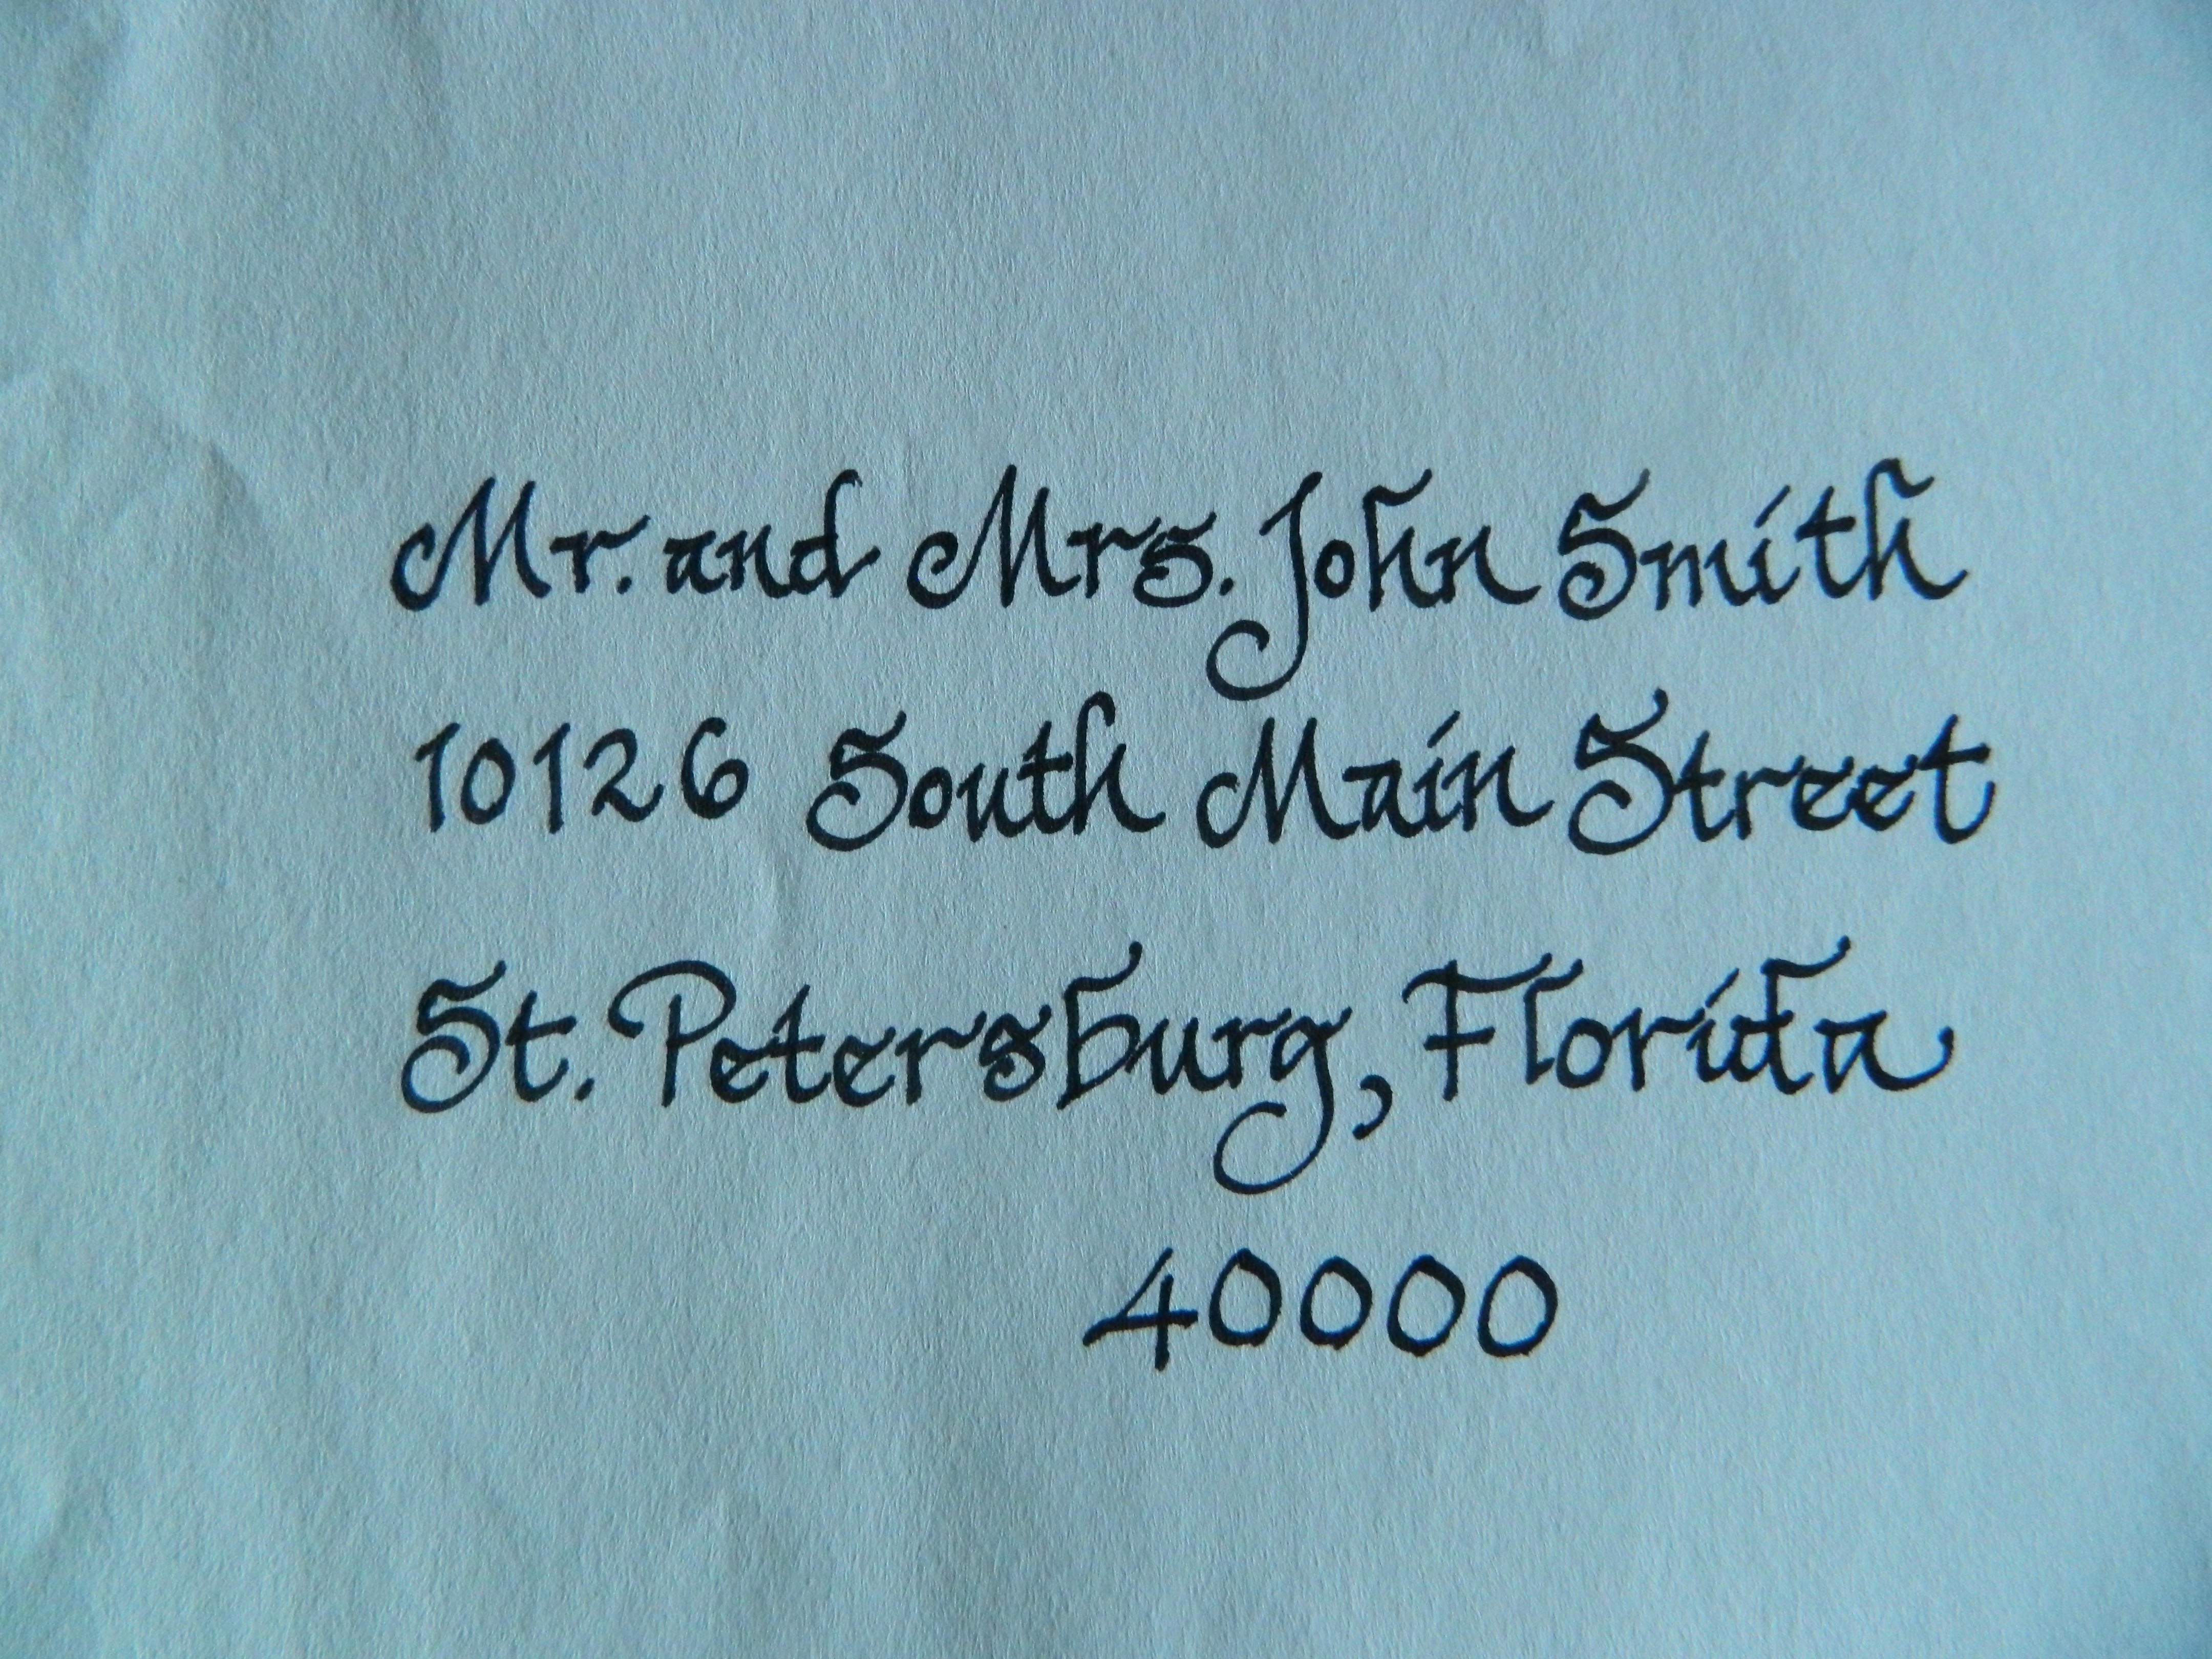 Mr. and Mrs. John Smith
10126 South Main Street
St. Petersburg, Florida
40000